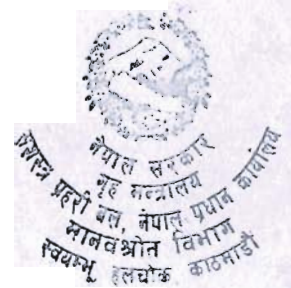 नेपाल सरकार
गृह मन्त्रालय
सशस्त्र प्रहरी बल, नेपाल प्रधान कार्यालय
मानवश्रोत विभाग
स्वयम्भू हलचोक काठमाडौं